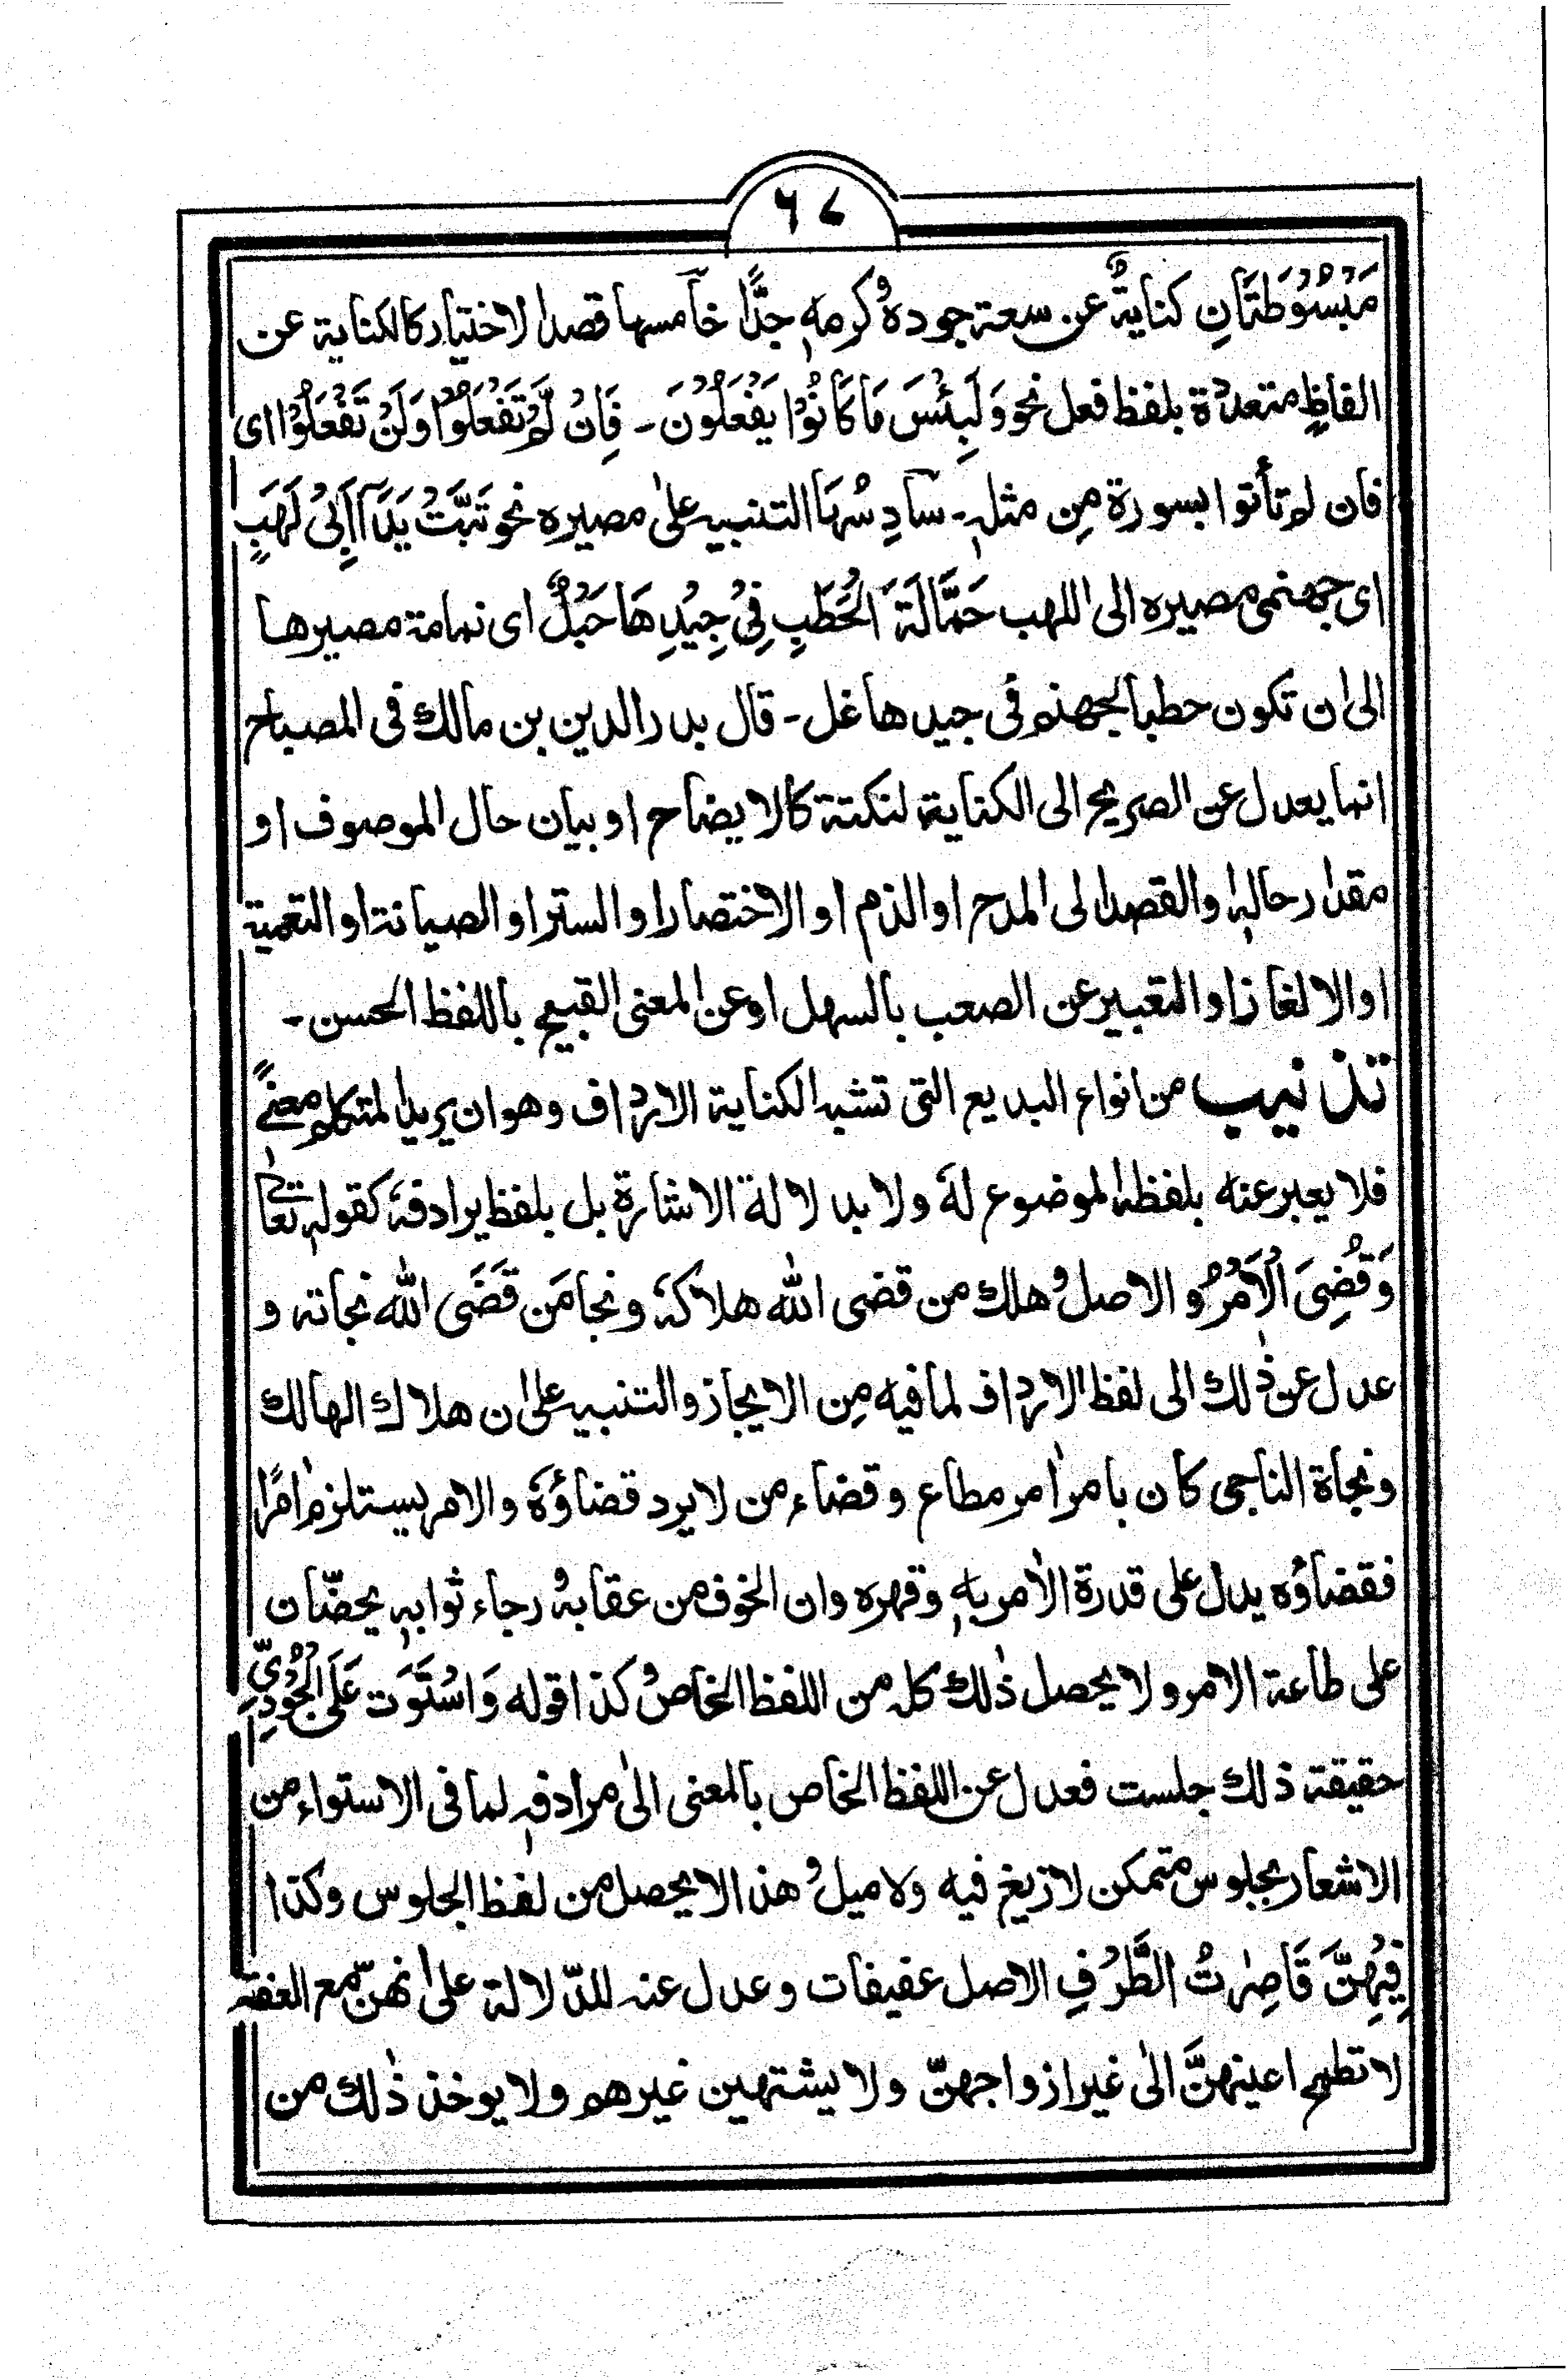 ۶۷
مَبْسُوْطَتَانِ كنايةٌ عن سعة جوده وكرمهٖ جدًّا خامسها قصد الاختيار كالكناية عن
الفاظٍ متعددة بلفظ فعل نحو وَلَبِئْسَ مَا كَانُوْا يَفْعَلُوْنَ ـ فَاِنْ لَّمْ تَفْعَلُوْا وَلَنْ تَفْعَلُوْا اى
فان لم تأتوا بسورة مِن مثلهٖ ـ سادِسُهَا التنبيه علىٰ مصيره نحو تَبَّتْ يَدَآ اَبِىْ لَهَبٍ
اى جهنمى مصيره الى اللهب حَمَّالَةَ الْحَطَبِ فِىْ جِيْدِهَا حَبْلٌ اى نمامة مصيرها
الىٰ ان تكون حطبا لجهنم فى جيدها غل ـ قال بدر الدين بن مالك فى المصباح
انما يعدل عن الصريح الى الكناية لنكتة كالايضاح او بيان حال الموصوف او
مقدار حالهٖ والقصد الى المدح او الذم او الاختصار او الستر او الصيانة او التعمية
او الالغاز او التعبير عن الصعب بالسهل او عن المعنى القبيح باللفظ الحسن ـ
تذنيب من انواع البديع التى تشبه الكناية الارداف وهو ان يريد المتكلم معنىً
فلا يعبر عنه بلفظه الموضوع لهٗ ولا بدلالة الاشارة بل بلفظ يرادفهٗ كقولهٖ تعالىٰ
وَقُضِىَ الْاَمْرُ و الاصل وهلك من قضى الله هلاكهٗ ونجا مَن قَضَى الله نجاته و
عدل عن ذٰلك الى لفظ الارداف لما فيه مِن الايجاز والتنبيه علىٰ ان هلاك الهالك
ونجاة الناجى كان بامر اٰمر مطاع وقضاء من لا يرد قضاؤهٗ والامر يستلزم اٰمرًا
فقضاؤه يدل على قدرة الاٰمر بهٖ وقهره وان الخوف من عقابه ورجاء ثوابهٖ يحضّان
على طاعة الامر ولا يحصل ذٰلك كله من اللفظ الخاص وكذا قوله وَاسْتَوَت عَلَى الْجُوْدِىِّ
حقيقة ذلك جلست فعدل عن اللفظ الخاص بالمعنى الىٰ مرادفهٖ لما فى الاستواء من
الاشعار بجلوس متمكن لا زيغ فيه ولا ميل وهذا لا يحصل من لفظ الجلوس وكذا
فِيْهِنَّ قَاصِرٰتُ الطَّرْفِ الاصل عفيفات وعدل عنه للدّلالة علىٰ انهنّ مع العفة
لا تطمح اعينهنَّ الىٰ غير ازواجهنّ ولا يشتهين غيرهم ولا يوخذ ذٰلك من